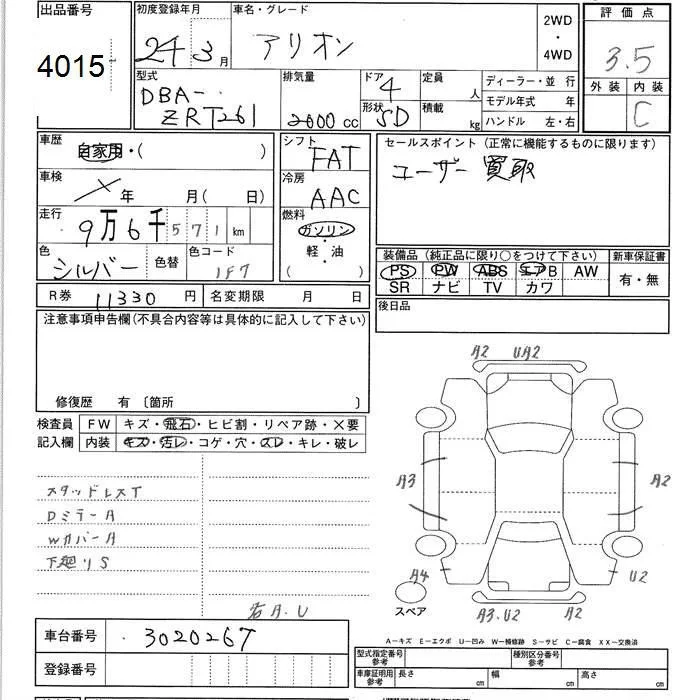 出品番号
4015
初度登録年月
24年3月
車名・グレード
アリオン
2WD
・
4WD
評価点
3.5
外装 内装
C
型式
DBA-
ZRT261
排気量
2000cc
ドア 4
形状 SD
定員 人
積載 kg
ディーラー・並行
モデル年式 年
ハンドル 左・右
車歴
自家用・( )
車検
年 月( 日)
走行
9万6千571km
色
シルバー
色替
色コード
1F7
シフト
FAT
冷房
AAC
燃料
ガソリン
・
軽・油
( )
セールスポイント(正常に機能するものに限ります)
ユーザー買取
装備品(純正品に限り○をつけて下さい)
PS PW ABS エアB AW
SR ナビ TV カワ
新車保証書
有・無
R券 11330円
名変期限 月 日
後日品
注意事項申告欄(不具合内容等は具体的に記入して下さい)
修復歴 有 〔箇所 〕
検査員
記入欄
FW キズ・飛石・ヒビ割・リペア跡・×要
内装 キズ・汚レ・コゲ・穴・スレ・キレ・破レ
スタッドレスT
DミラーA
WカバーA
下廻りS
右A.U
A2 UA2
A3
A2
A4
U2
スペア
A3.U2 A2
A-キズ E-エクボ U-凹み W-補修跡 S-サビ C-腐食 XX-交換済
車台番号
3020267
登録番号
型式指定番号
参考
種別区分番号
参考
車庫証明用
参考
長さ cm
幅 cm
高さ cm